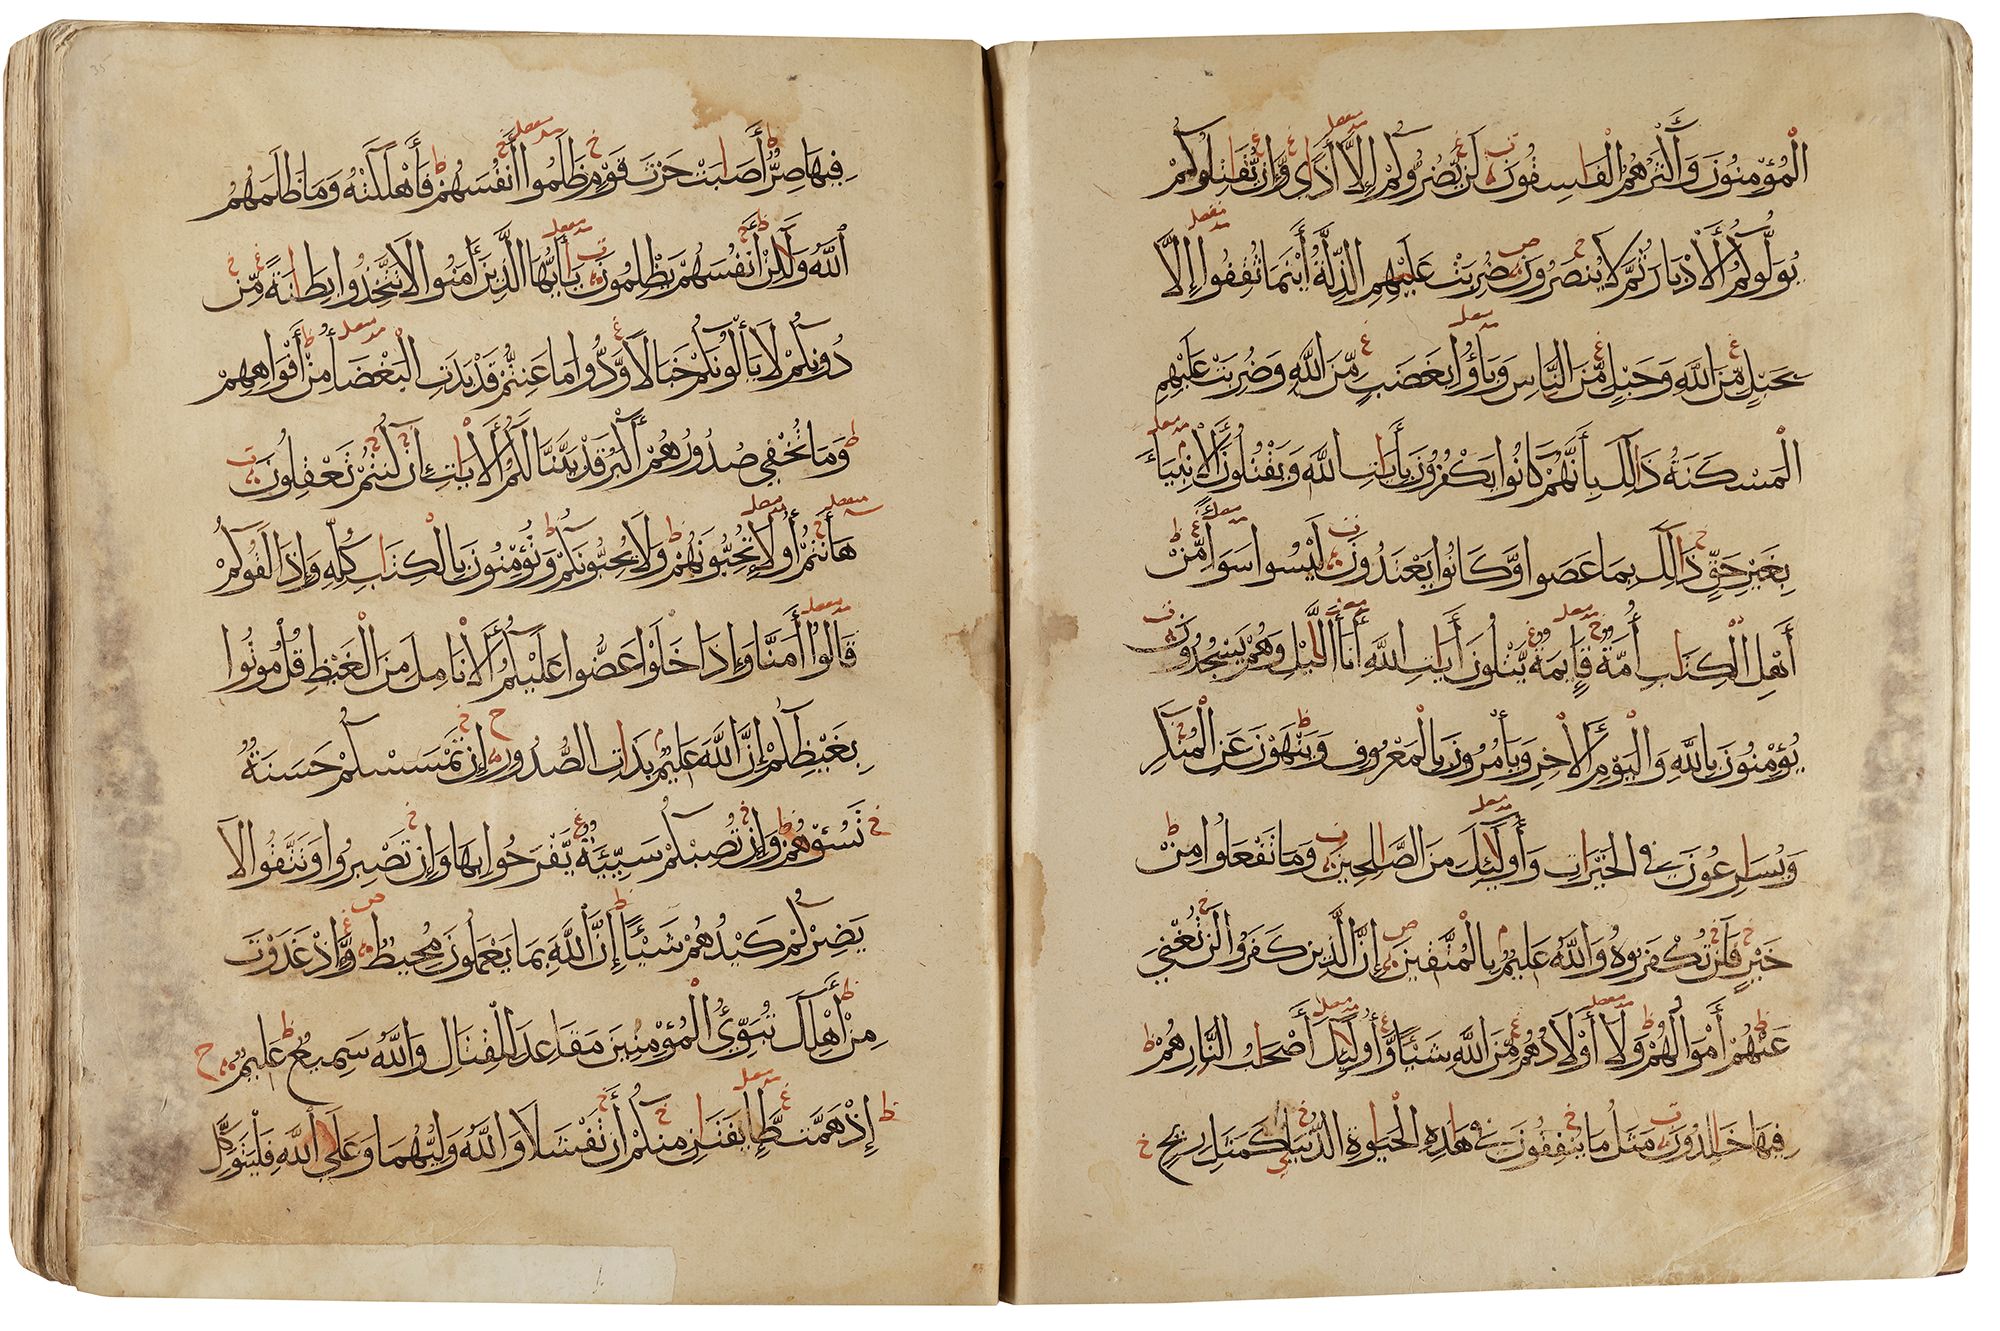 الْمُؤْمِنُونَ وَأَكْثَرُهُمُ الْفَاسِقُونَ لَنْ يَضُرُّوكُمْ إِلَّا أَذًى وَإِنْ يُقَاتِلُوكُمْ
يُوَلُّوكُمُ الْأَدْبَارَ ثُمَّ لَا يُنْصَرُونَ ضُرِبَتْ عَلَيْهِمُ الذِّلَّةُ أَيْنَمَا ثُقِفُوا إِلَّا
بِحَبْلٍ مِّنَ اللَّهِ وَحَبْلٍ مِّنَ النَّاسِ وَبَاؤُا بِغَضَبٍ مِّنَ اللَّهِ وَضُرِبَتْ عَلَيْهِمُ
الْمَسْكَنَةُ ذَالِكَ بِأَنَّهُمْ كَانُوا يَكْفُرُونَ بِأَيَاتِ اللَّهِ وَيَقْتُلُونَ الْأَنْبِيَاءَ
بِغَيْرِ حَقٍّ ذَالِكَ بِمَا عَصَوا وَّكَانُوا يَعْتَدُونَ لَيْسُوا سَوَاءً مِّنْ
أَهْلِ الْكِتَابِ أُمَّةٌ قَائِمَةٌ يَّتْلُونَ أَيَاتِ اللَّهِ أَنَاءَ اللَّيْلِ وَهُمْ يَسْجُدُونَ
يُؤْمِنُونَ بِاللَّهِ وَالْيَوْمِ الْأَخِرِ وَيَأْمُرُونَ بِالْمَعْرُوفِ وَيَنْهَوْنَ عَنِ الْمُنْكَرِ
وَيُسَارِعُونَ فِي الْخَيْرَاتِ وَأُولَئِكَ مِنَ الصَّالِحِينَ وَمَا تَفْعَلُوا مِنْ
خَيْرٍ فَلَنْ تُكْفَرُوهُ وَاللَّهُ عَلِيمٌ بِالْمُتَّقِينَ إِنَّ الَّذِينَ كَفَرُوا لَنْ تُغْنِيَ
عَنْهُمْ أَمْوَالُهُمْ وَلَا أَوْلَادُهُمْ مِّنَ اللَّهِ شَيْئًا وَّأُولَئِكَ أَصْحَابُ النَّارِ هُمْ
فِيهَا خَالِدُونَ مَثَلُ مَا يُنْفِقُونَ فِي هَذِهِ الْحَيَاوةِ الدُّنْيَا كَمَثَلِ رِيحٍ
فِيهَا صِرٌّ أَصَابَتْ حَرْثَ قَوْمٍ ظَلَمُوا أَنْفُسَهُمْ فَأَهْلَكَتْهُ وَمَا ظَلَمَهُمُ
اللَّهُ وَلَاكِنْ أَنْفُسَهُمْ يَظْلِمُونَ يَا أَيُّهَا الَّذِينَ أَمَنُوا لَا تَتَّخِذُوا بِطَانَةً مِّنْ
دُونِكُمْ لَا يَأْلُونَكُمْ خَبَالًا وَّدُّوا مَا عَنِتُّمْ قَدْ بَدَتِ الْبَغْضَاءُ مِنْ أَفْوَاهِهِمْ
وَمَا تُخْفِي صُدُورُهُمْ أَكْبَرُ قَدْ بَيَّنَّا لَكُمُ الْأَيَاتِ إِنْ كُنْتُمْ تَعْقِلُونَ
هَا أَنْتُمْ أُولَاءِ تُحِبُّونَهُمْ وَلَا يُحِبُّونَكُمْ وَتُؤْمِنُونَ بِالْكِتَابِ كُلِّهِ وَإِذَا لَقُوكُمْ
قَالُوا أَمَنَّا وَإِذَا خَلَوْا عَضُّوا عَلَيْكُمُ الْأَنَامِلَ مِنَ الْغَيْظِ قُلْ مُوتُوا
بِغَيْظِكُمْ إِنَّ اللَّهَ عَلِيمٌ بِذَاتِ الصُّدُورِ إِنْ تَمْسَسْكُمْ حَسَنَةٌ
تَسُؤْهُمْ وَإِنْ تُصِبْكُمْ سَيِّئَةٌ يَّفْرَحُوا بِهَا وَإِنْ تَصْبِرُوا وَتَتَّقُوا لَا
يَضِرْكُمْ كَيْدُهُمْ شَيْئًا إِنَّ اللَّهَ بِمَا يَعْمَلُونَ مُحِيطٌ وَّإِذْ غَدَوْتَ
مِنْ أَهْلِكَ تُبَوِّئُ الْمُؤْمِنِينَ مَقَاعِدَ لِلْقِتَالِ وَاللَّهُ سَمِيعٌ عَلِيمٌ
إِذْ هَمَّت طَّائِفَتَانِ مِنْكُمْ أَنْ تَفْشَلَا وَاللَّهُ وَلِيُّهُمَا وَعَلَى اللَّهِ فَلْيَتَوَكَّلِ